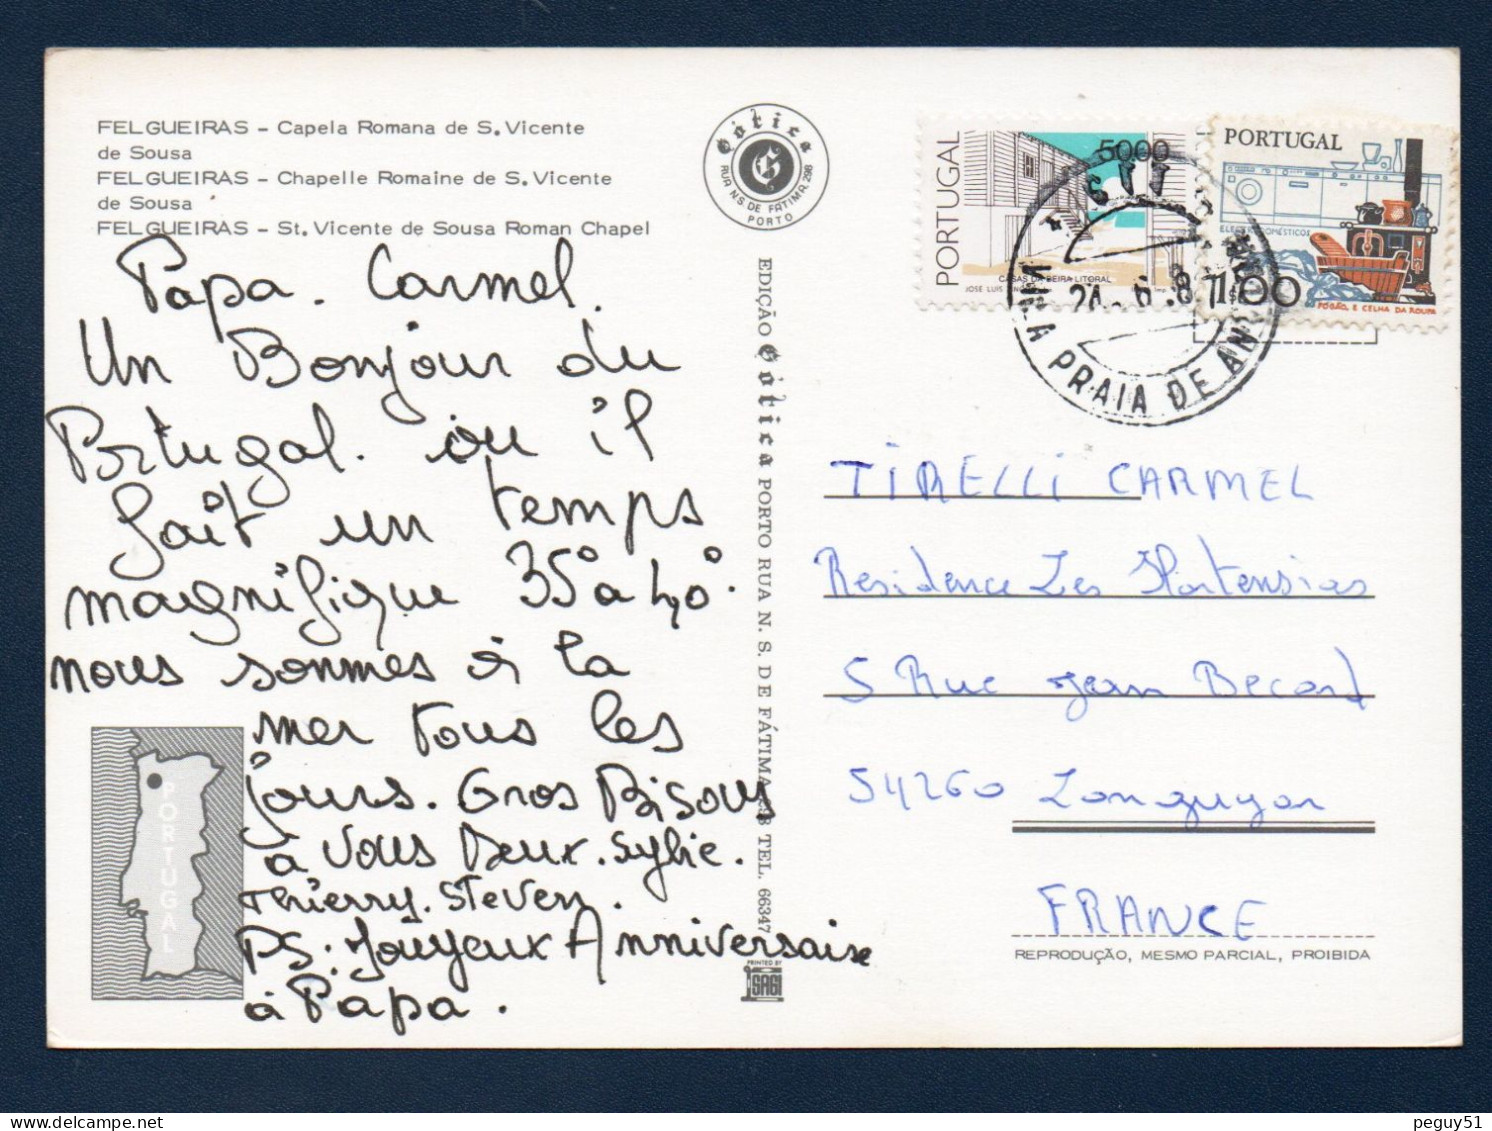 FELGUEIRAS - Capela Romana de S. Vicente
de Sousa
FELGUEIRAS - Chapelle Romaine de S. Vicente
de Sousa
FELGUEIRAS - St. Vicente de Sousa Roman Chapel
Papa. Carmel.
Un Bonjour du
Portugal. ou il
fait un temps
magnifique 35° a 40°.
nous sommes à la
mer tous les
jours. Gros Bisous
a vous Deux. Sylvie.
Thierry. Steven.
PS. Joyeux Anniversaire
à Papa.
PORTUGAL
Gótica
RUA N.S. DE FÁTIMA, 298
PORTO
EDIÇÃO Gótica PORTO RUA N. S. DE FÁTIMA, 298 TEL. 66347
PRINTED BY
SAGI
PORTUGAL
5000
CASAS DA BEIRA LITORAL
JOSE LUIS
PORTUGAL
ELECTRODOMÉSTICOS
11$00
FOGÃO, E CELHA DA ROUPA
CTT
24. 6. 8
PRAIA DE ANC
TIRELLI CARMEL
Residence Les Hortensias
5 Rue Jean Becard
54260 Longuyon
FRANCE
REPRODUÇÃO, MESMO PARCIAL, PROIBIDA
peguy51